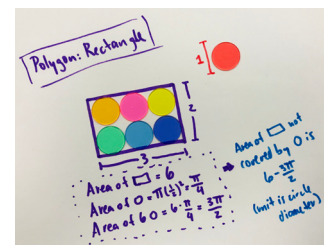 Polygon: Rectangle
1
2
3
Area of ▭ = 6
Area of O = π(½)² = π/4
Area of 6 O = 6 · π/4 = 3π/2
Area of ▭ not
covered by O is
6 - 3π/2
(unit is circle
diameter)